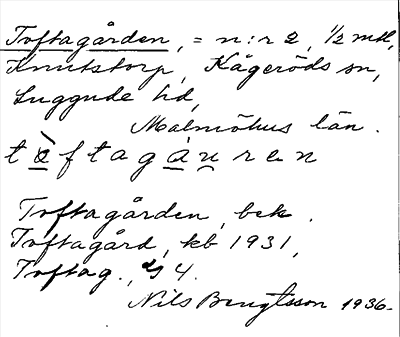 Toftagården, = n:r 2, 1/2 mtl,
Knutstorp, Kågeröds sn,
Luggude hd,
Malmöhus län.
Toftagården, bek.
Toftagård, kb 1931,
Toftag., 4.
Nils Bengtsson 1936.